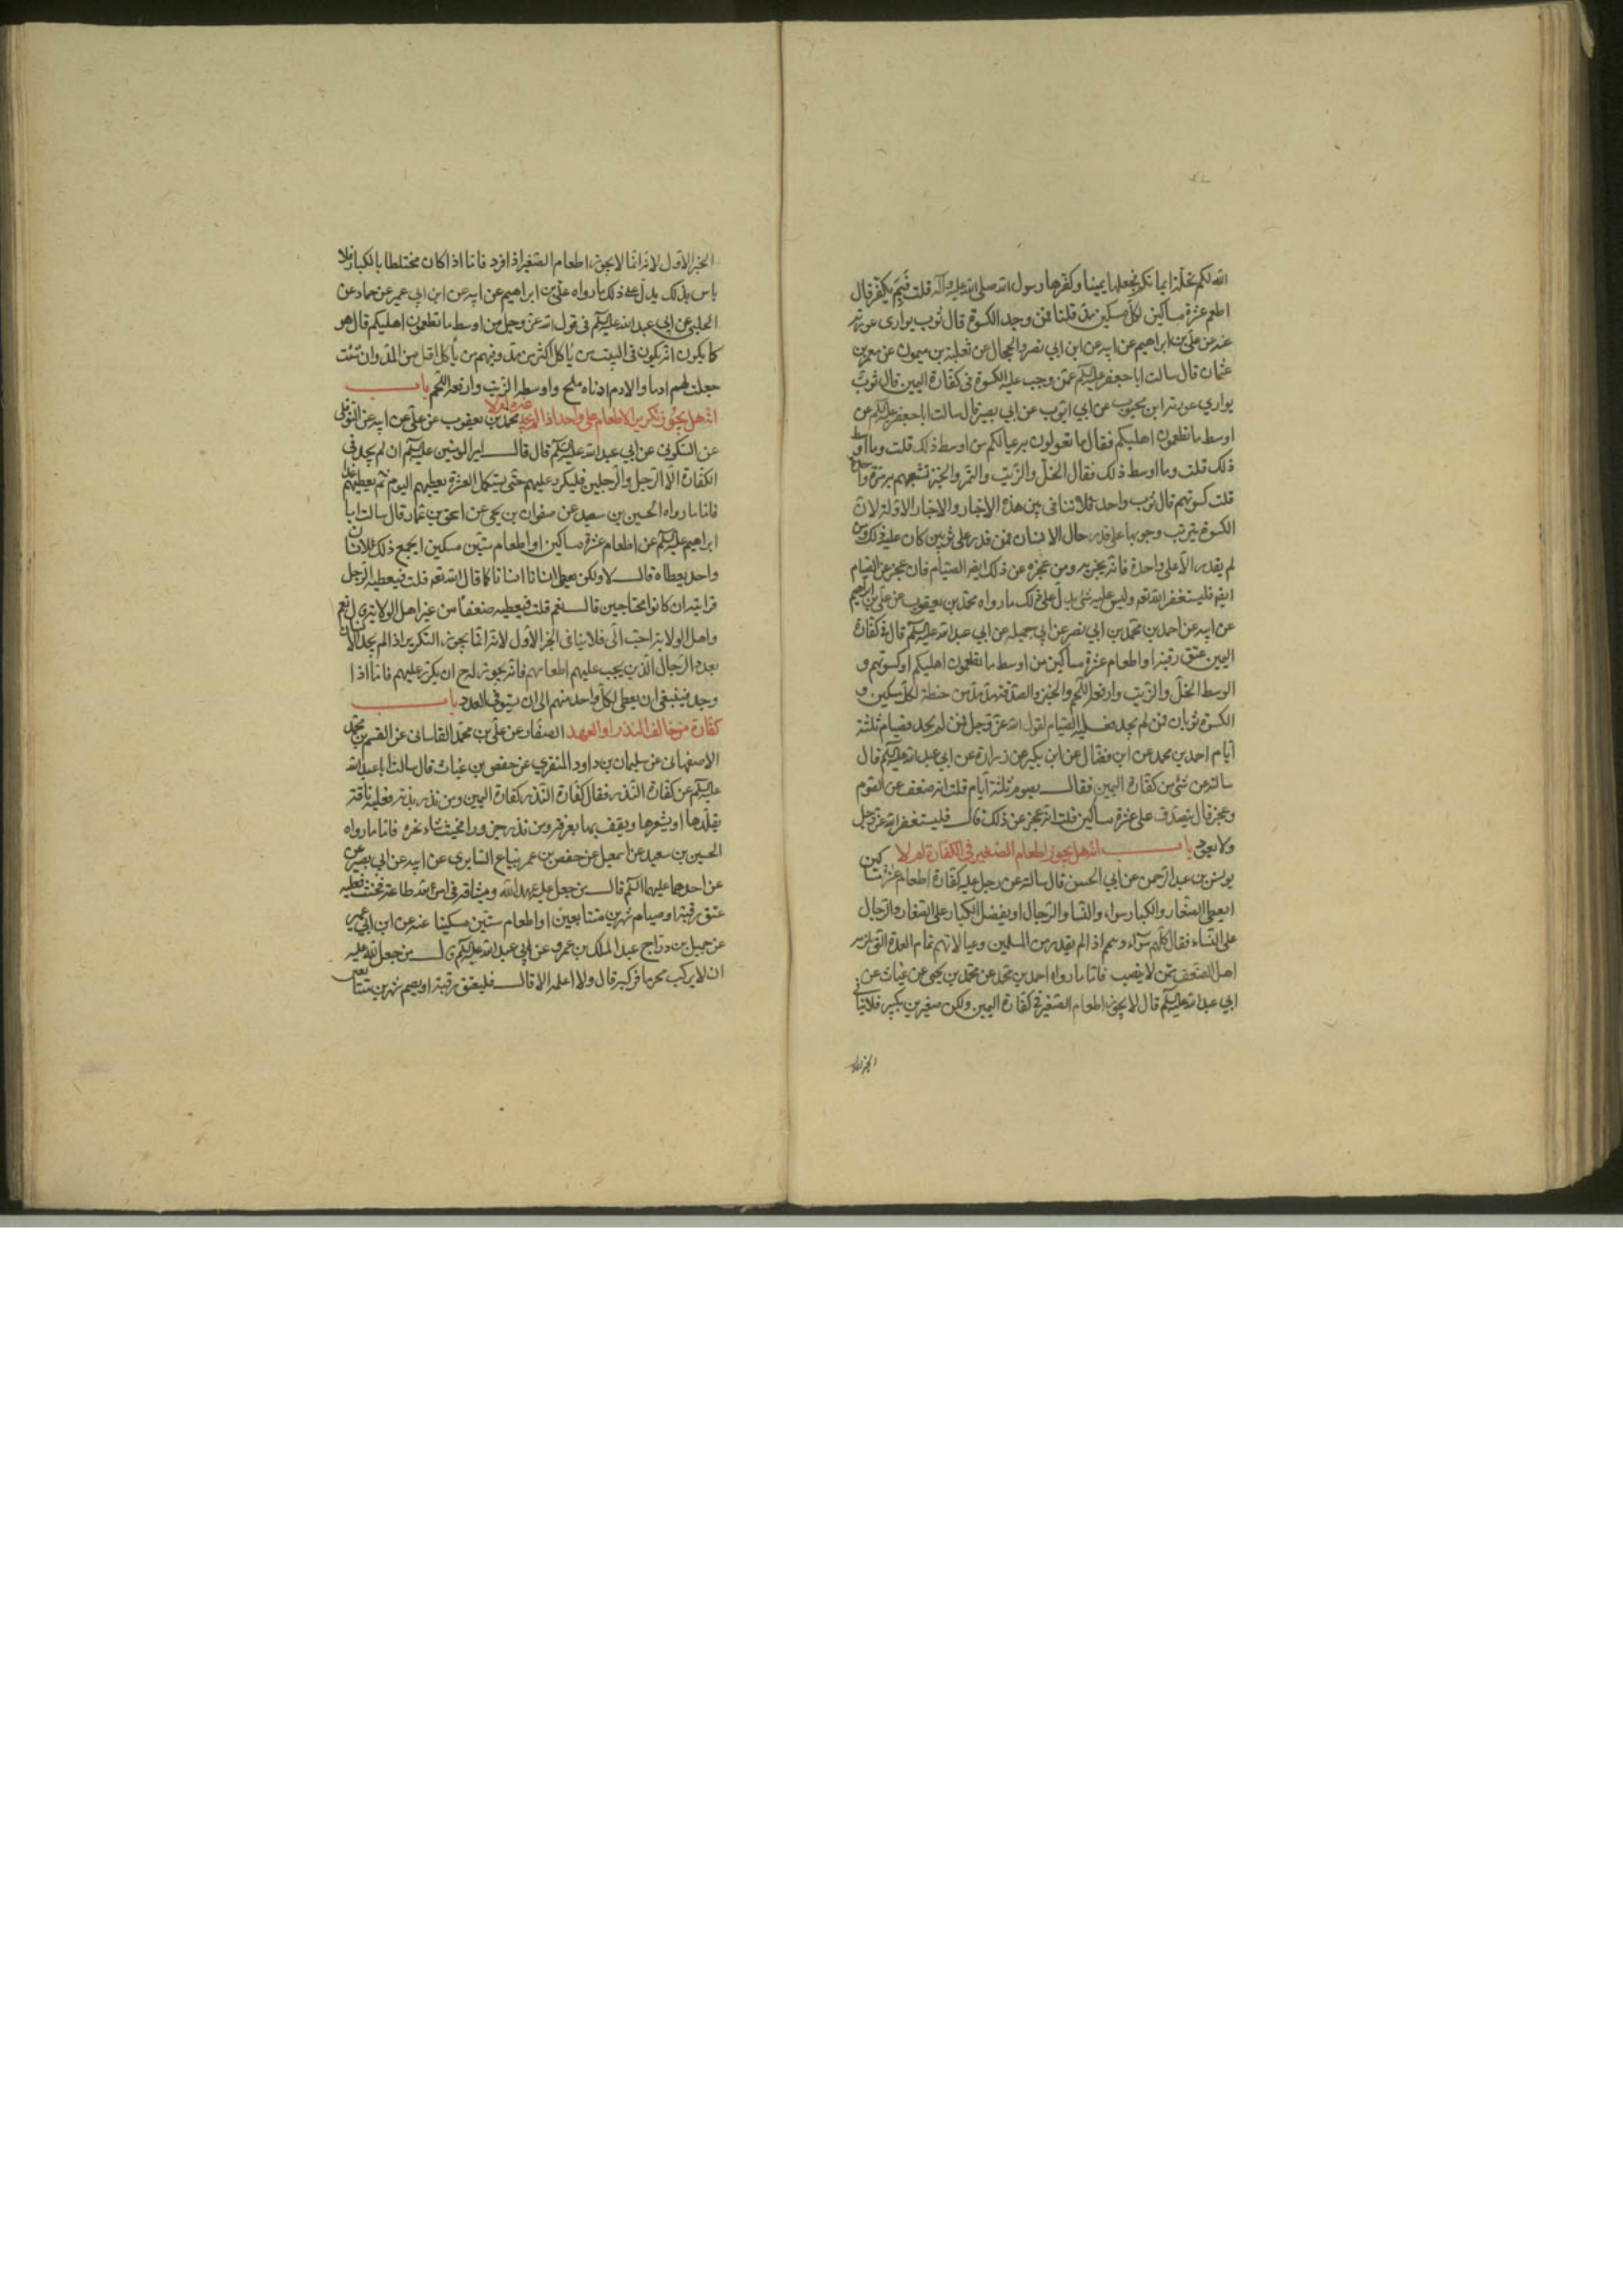 الله لكم تحلة ايمانكم فجعلها يمينا وكفرها رسول الله صلى الله عليه وآله قلت فبم يكفر قال
اطعم عشرة مساكين لكل مسكين مد قلنا فمن وجد الكسوة قال ثوب يوارى عورته
عنه عن علي بن ابراهيم عن ابيه عن ابن ابي نصر والحجال عن ثعلبة بن ميمون عن معمر بن
عثمان قال سالت ابا جعفر عليه السلم عمن وجب عليه الكسوة في كفارة اليمين قال ثوب
يواري عورته ابن محبوب عن ابي ايوب عن ابي بصير قال سالت ابا جعفر عليه السلم عن
اوسط ما تطعمون اهليكم فقال ما تعولون به عيالكم من اوسط ذلك قلت وما اوسط
ذلك قلت وما اوسط ذلك فقال الخل والزيت والتمر والخبز تشبعهم به مرة واحدة
قلت كسوتهم قال ثوب واحد فلا تنافى بين هذه الاخبار والاخبار الاولة لان
الكسوة يترتب وجوبها على قدر حال الانسان فمن قدر على ثوبين كان عليه ذلك ومن
لم يقدر الا على واحدة فانه يجزيه ومن عجزه عن ذلك ايضا الصيام فان عجز عن الصيام
ايضا فليستغفر الله تعالى وليس عليه شئ يدل على ذلك ما رواه محمد بن يعقوب عن علي بن ابراهيم
عن ابيه عن احمد بن محمد بن ابي نصر عن ابي جميله عن ابي عبد الله عليه السلم قال في كفارة
اليمين عتق رقبة او اطعام عشرة مساكين من اوسط ما تطعمون اهليكم او كسوتهم و
الوسط الخل والزيت وارفعه اللحم والخبز والصدقة مد مد من حنطة لكل مسكين و
الكسوة ثوبان فمن لم يجد فعليه الصيام لقول الله عز وجل فمن لم يجد فصيام ثلثة
ايام احمد بن محمد عن ابن فضال عن ابن بكير عن زرارة عن ابي عبد الله عليه السلم قال
سالته عن شئ من كفارة اليمين فقال يصوم ثلثة ايام قلت انه ضعف عن الصوم
وعجز قال يتصدق على عشرة مساكين قلت انه عجز عن ذلك قال فليستغفر الله عز وجل
ولا يعود باب انه هل يجوز اطعام الصغير في الكفارة ام لا
يونس بن عبد الرحمن عن ابي الحسن قال سالته عن رجل عليه كفارة اطعام عشرة مساكين
ايعطى الصغار والكبار سواء والنسا والرجال او يفضل الكبار على الصغار والرجال
على النساء فقال كلهم سواء ويتمم اذا لم يقدر من المسلمين وعيالاتهم تمام العدة التي تلزمه
اهل الضعف ممن لا ينصب فاما ما رواه احمد بن محمد عن محمد بن يحيى عن غياث عن
ابي عبد الله عليه السلم قال لا يجزي اطعام الصغير في كفارة اليمين ولكن صغيرين بكبير فلا ينافي
الخبر الاول
الخبر الاول لانه انما لا يجوز اطعام الصغير اذا افرد فاما اذا كان مختلطا بالكبار فلا
باس بذلك يدل على ذلك ما رواه علي بن ابراهيم عن ابيه عن ابن ابي عمير عن حماد عن
الحلبي عن ابي عبد الله عليه السلم في قول الله عز وجل من اوسط ما تطعمون اهليكم قال هو
كما يكون انه يكون في البيت من ياكل اكثر من مد ومنهم من ياكل اقل من المد وان شئت
جعلت لهم ادما والادم ادناه ملح واوسطه الزيت وارفعه اللحم باب
انه هل يجوز تكرير الاطعام على واحد اذا لم يجد غيره ام لا محمد بن يعقوب عن علي عن ابيه عن النوفلى
عن السكونى عن ابي عبد الله عليه السلم قال قال امير المومنين عليه السلم ان لم يجد في
الكفارة الا الرجل والرجلين فليكرر عليهم حتى يستكمل العشرة يعطيهم اليوم ثم يعطيهم غدا
فاما ما رواه الحسين بن سعيد عن صفوان بن يحيى عن اسحق بن عمار قال سالت ابا
ابراهيم عليه السلم عن اطعام عشرة مساكين او اطعام ستين مسكين ايجمع ذلك لانسان
واحد يعطاه قال لا ولكن يعطى انسانا انسانا كما قال الله تعالى قلت فيعطيه الرجل
قرابته ان كانوا محتاجين قال نعم قلت فيعطيه ضعفاء من غير اهل الولاية قال نعم
واهل الولاية احب الى فلا ينافى الخبر الاول لانه انما يجوز التكرير اذا لم يجد الانسان
بعدد الرجال الذين يجب عليهم اطعامهم فانه يجوز له ح ان يكرر عليهم فاما اذا
وجد فينبغي ان يعطى لكل واحد منهم الى ان يستوفى العدد باب
كفارة من خالف النذر او العهد الصفار عن علي بن محمد القاسانى عن القسم بن محمد
الاصفهانى عن سليمان بن داود المنقري عن حفص بن غياث قال سالت ابا عبد الله
عليه السلم عن كفارة النذر فقال كفارة النذر كفارة اليمين ومن نذر بدنة فعليه ناقة
يقلدها او يشعرها ويقف بها بعرفة ومن نذر جزورا فحيث شاء نحره فاما ما رواه
الحسين بن سعيد عن اسمعيل عن حفص بن عمر بياع السابري عن ابيه عن ابي بصير عن
عن احدهما عليهما السلم قال من جعل عليه عهد الله وميثاقه في امر لله طاعة فحنث فعليه
عتق رقبة او صيام شهرين متتابعين او اطعام ستين مسكينا عنه عن ابن ابي عمير
عن جميل بن دراج عبد الملك بن عمرو عن ابي عبد الله عليه السلم قال من جعل لله عليه
ان لا يركب محرما فركبه قال ولا اعلمه الا قال فليعتق رقبة او يصم شهرين متتابعين